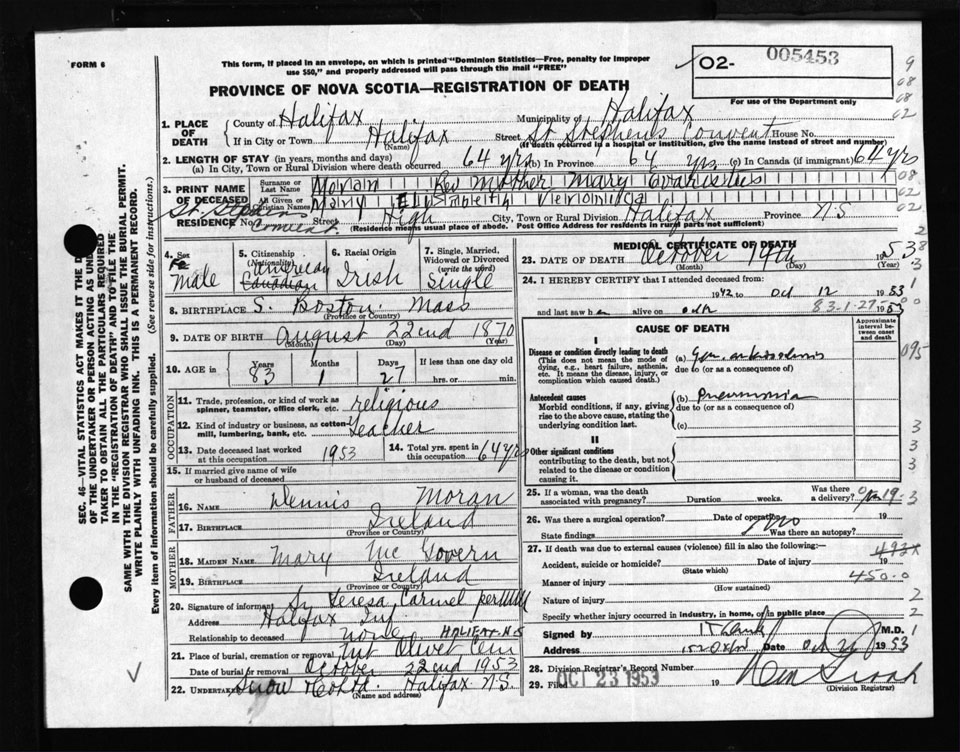 FORM 6
This form, if placed in an envelope, on which is printed "Dominion Statistics—Free, penalty for improper
use $50," and properly addressed will pass through the mail "FREE"
O2- 005453
For use of the Department only
PROVINCE OF NOVA SCOTIA—REGISTRATION OF DEATH
1. PLACE OF DEATH
County of Halifax Municipality of Halifax
If in City or Town Halifax (Name) Street St Stephens Convent House No.
(If death occurred in a hospital or institution, give the name instead of street and number)
2. LENGTH OF STAY (in years, months and days)
(a) In City, Town or Rural Division where death occurred 64 yrs (b) In Province 64 yrs (c) In Canada (if immigrant) 64 yrs
3. PRINT NAME OF DECEASED
Surname or Last Name Moran Rev Mother Mary Evaristus
All Given or Christian Names Mary Elisabeth Veronica
RESIDENCE No. St. Stephens Convent Street High City, Town or Rural Division Halifax Province N.S
(Residence means usual place of abode. Post Office Address for residents in rural parts not sufficient)
4. Sex Fe Male
5. Citizenship (Nationality) American Canadian
6. Racial Origin Irish
7. Single, Married, Widowed or Divorced (write the word) Single
8. BIRTHPLACE S. Boston Mass
(Province or Country)
9. DATE OF BIRTH August 22nd 1870
(Month) (Day) (Year)
10. AGE in Years 83 Months 1 Days 27 If less than one day old hrs. or min.
OCCUPATION
11. Trade, profession, or kind of work as spinner, teamster, office clerk, etc. religious
12. Kind of industry or business, as cotton-mill, lumbering, bank, etc. Teacher
13. Date deceased last worked at this occupation 1953
14. Total yrs. spent in this occupation 64 yrs
15. If married give name of wife or husband of deceased
FATHER
16. NAME Dennis Moran
17. BIRTHPLACE Ireland
(Province or Country)
MOTHER
18. MAIDEN NAME Mary McGovern
19. BIRTHPLACE Ireland
(Province or Country)
20. Signature of informant Sr Teresa Carmel per
Address Halifax
Relationship to deceased none HALIFAX N S
21. Place of burial, cremation or removal Mt Olivet Cem
Date of burial or removal October 22nd 1953
22. Undertaker Snow & Co Ltd. Halifax N.S.
(Name and address)
MEDICAL CERTIFICATE OF DEATH
23. DATE OF DEATH October 19th 1953
(Month) (Day) (Year)
24. I HEREBY CERTIFY that I attended deceased from:
1942 to Oct 12 1953
and last saw h alive on 1953
83-1-27
CAUSE OF DEATH
Approximate interval between onset and death
I
Disease or condition directly leading to death (a)
(This does not mean the mode of dying, e.g., heart failure, asthenia, etc. It means the disease, injury, or complication which caused death.)
due to (or as a consequence of)
Antecedent causes (b) Pneumonia
Morbid conditions, if any, giving rise to the above cause, stating the underlying condition last.
due to (or as a consequence of)
(c)
II
Other significant conditions
contributing to the death, but not related to the disease or condition causing it.
25. If a woman, was the death associated with pregnancy? Duration weeks. Was there a delivery? 19
26. Was there a surgical operation? Date of operation 19
State findings Was there an autopsy? no
27. If death was due to external causes (violence) fill in also the following:—
Accident, suicide or homicide? Date of injury 19
(State which)
493X
Manner of injury 450.0
(How sustained)
Nature of injury
Specify whether injury occurred in industry, in home, or in public place
Signed by M.D.
Address 1953
28. Division Registrar's Record Number
29. Filed OCT 23 1953 19
(Division Registrar)
SEC. 46—VITAL STATISTICS ACT MAKES IT THE D
OF THE UNDERTAKER OR PERSON ACTING AS UND
TAKER TO OBTAIN ALL THE PARTICULARS REQUIRED
IN THE "REGISTRATION OF DEATH" AND TO FILE THE
SAME WITH THE DIVISION REGISTRAR WHO SHALL ISSUE THE BURIAL PERMIT.
WRITE PLAINLY WITH UNFADING INK. THIS IS A PERMANENT RECORD.
Every item of information should be carefully supplied. (See reverse side for instructions.)